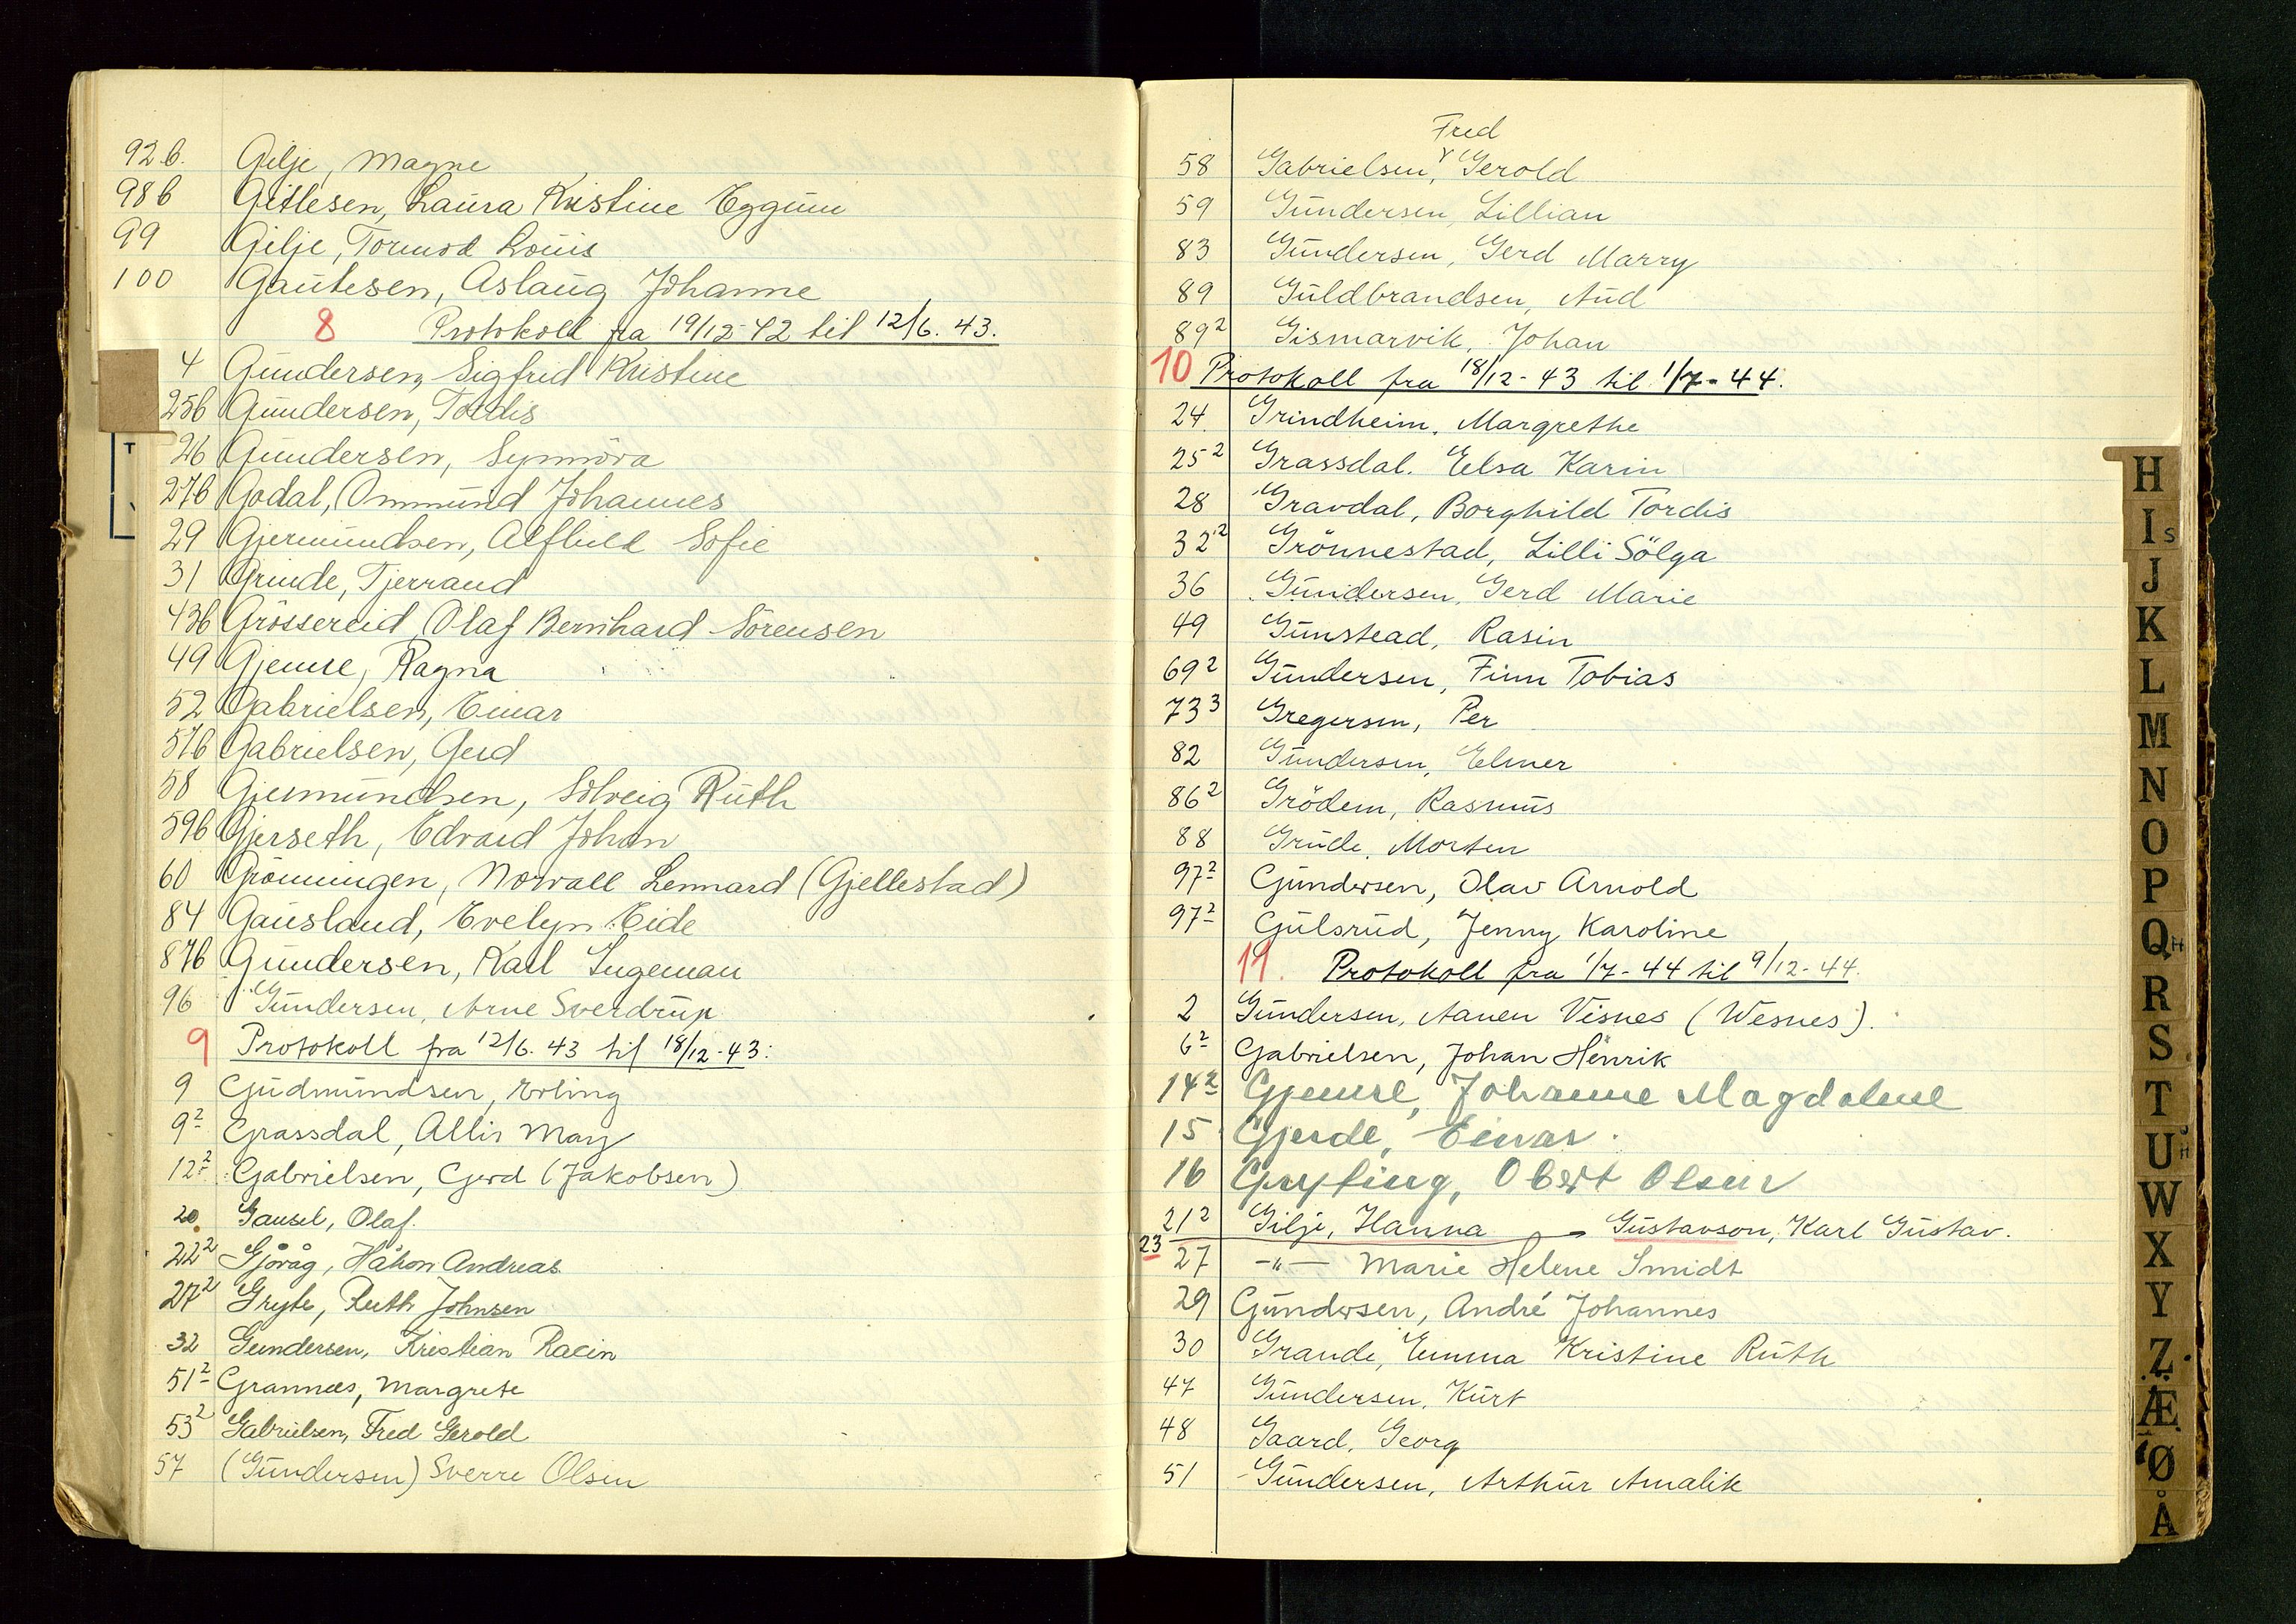 92 b. Gilje, Magne
98 b Gitlesen, Laura Kristine Eggum
99 Gilje, Tormod Louis
100 Gautesen, Aslaug Johanne
8 Protokoll fra 19/12-42 til 12/6. 43.
4 Gundersen, Sigfrid Kristine
25b Gundersen, Tordis
26 Gundersen, Synnöva
27b Godal, Ommund Johannes
29 Gjermundsen, Alfhild Sofie
31 Grinde, Tjerrand
43b Grössereid, Olaf Bernhard Sörensen
49 Gjemre, Ragna
52 Gabrielsen, Einar
57b Gabrielsen, Gerd
58 Gjermundsen, Solveig Ruth
59b Gjerseth, Edvard Johan
60 Grönningen, Norvall Lennard (Gjellestad)
84 Gausland, Evelyn Eide
87b Gundersen, Karl Ingeman
96 Gundersen, Arne Sverdrup
9 Protokoll fra 12/6. 43 til 18/12-43:
9 Gudmundsen, Erling
9² Grassdal, Allis May
12² Gabrielsen, Gerd (Jakobsen)
20 Gausel, Olaf.
22² Gjøråg, Håkon Andreas
27² Gryte, Ruth Johnsen
32 Gundersen, Kristian Racin
51² Grannæs, Margrete
53² Gabrielsen, Fred Gerold
57 (Gundersen) Sverre Olsen
Fred
58 Gabrielsen, Gerold
59 Gundersen, Lillian
83 Gundersen, Gerd Marry
89 Guldbrandsen, Aud
89² Gismarvik, Johan
10 Protokoll fra 18/12-43 til 1/7-44.
24. Grindheim, Margrethe
25² Grassdal. Elsa Karin
28 Gravdal, Borghild Tordis
32² Grönnestad, Lilli Sölga
36 Gundersen, Gerd Marie
49 Gunstead, Rasin
69² Gundersen, Finn Tobias
73³ Gregersen, Per
82 Gundersen, Elmer
86² Grödem, Rasmus
88 Grude, Morten
97² Gundersen, Olav Arnold
97² Gulsrud, Jenny Karoline
11. Protokoll fra 1/7-44 til 9/12-44.
2 Gundersen, Aanen Visnes (Wesnes).
6² Gabrielsen, Johan Henrik
14² Gjemre, Johanne Magdalene
15 Gjerde, Einar.
16 Gryting, Obert Olsen
21² Gilje, Hanna
23 Gustavson, Karl Gustav.
27 -"- Marie Helene Smidt
29 Gundersen, André Johannes
30 Grande, Emma Kristine Ruth
47 Gundersen, Kurt
48 Gaard, Georg
51 Gundersen, Arthur Amalik
H
I s
J
K
L
M
N
O
P
Q H
R
S
T
U
W
X
Y
Z
Æ
Ø
Å